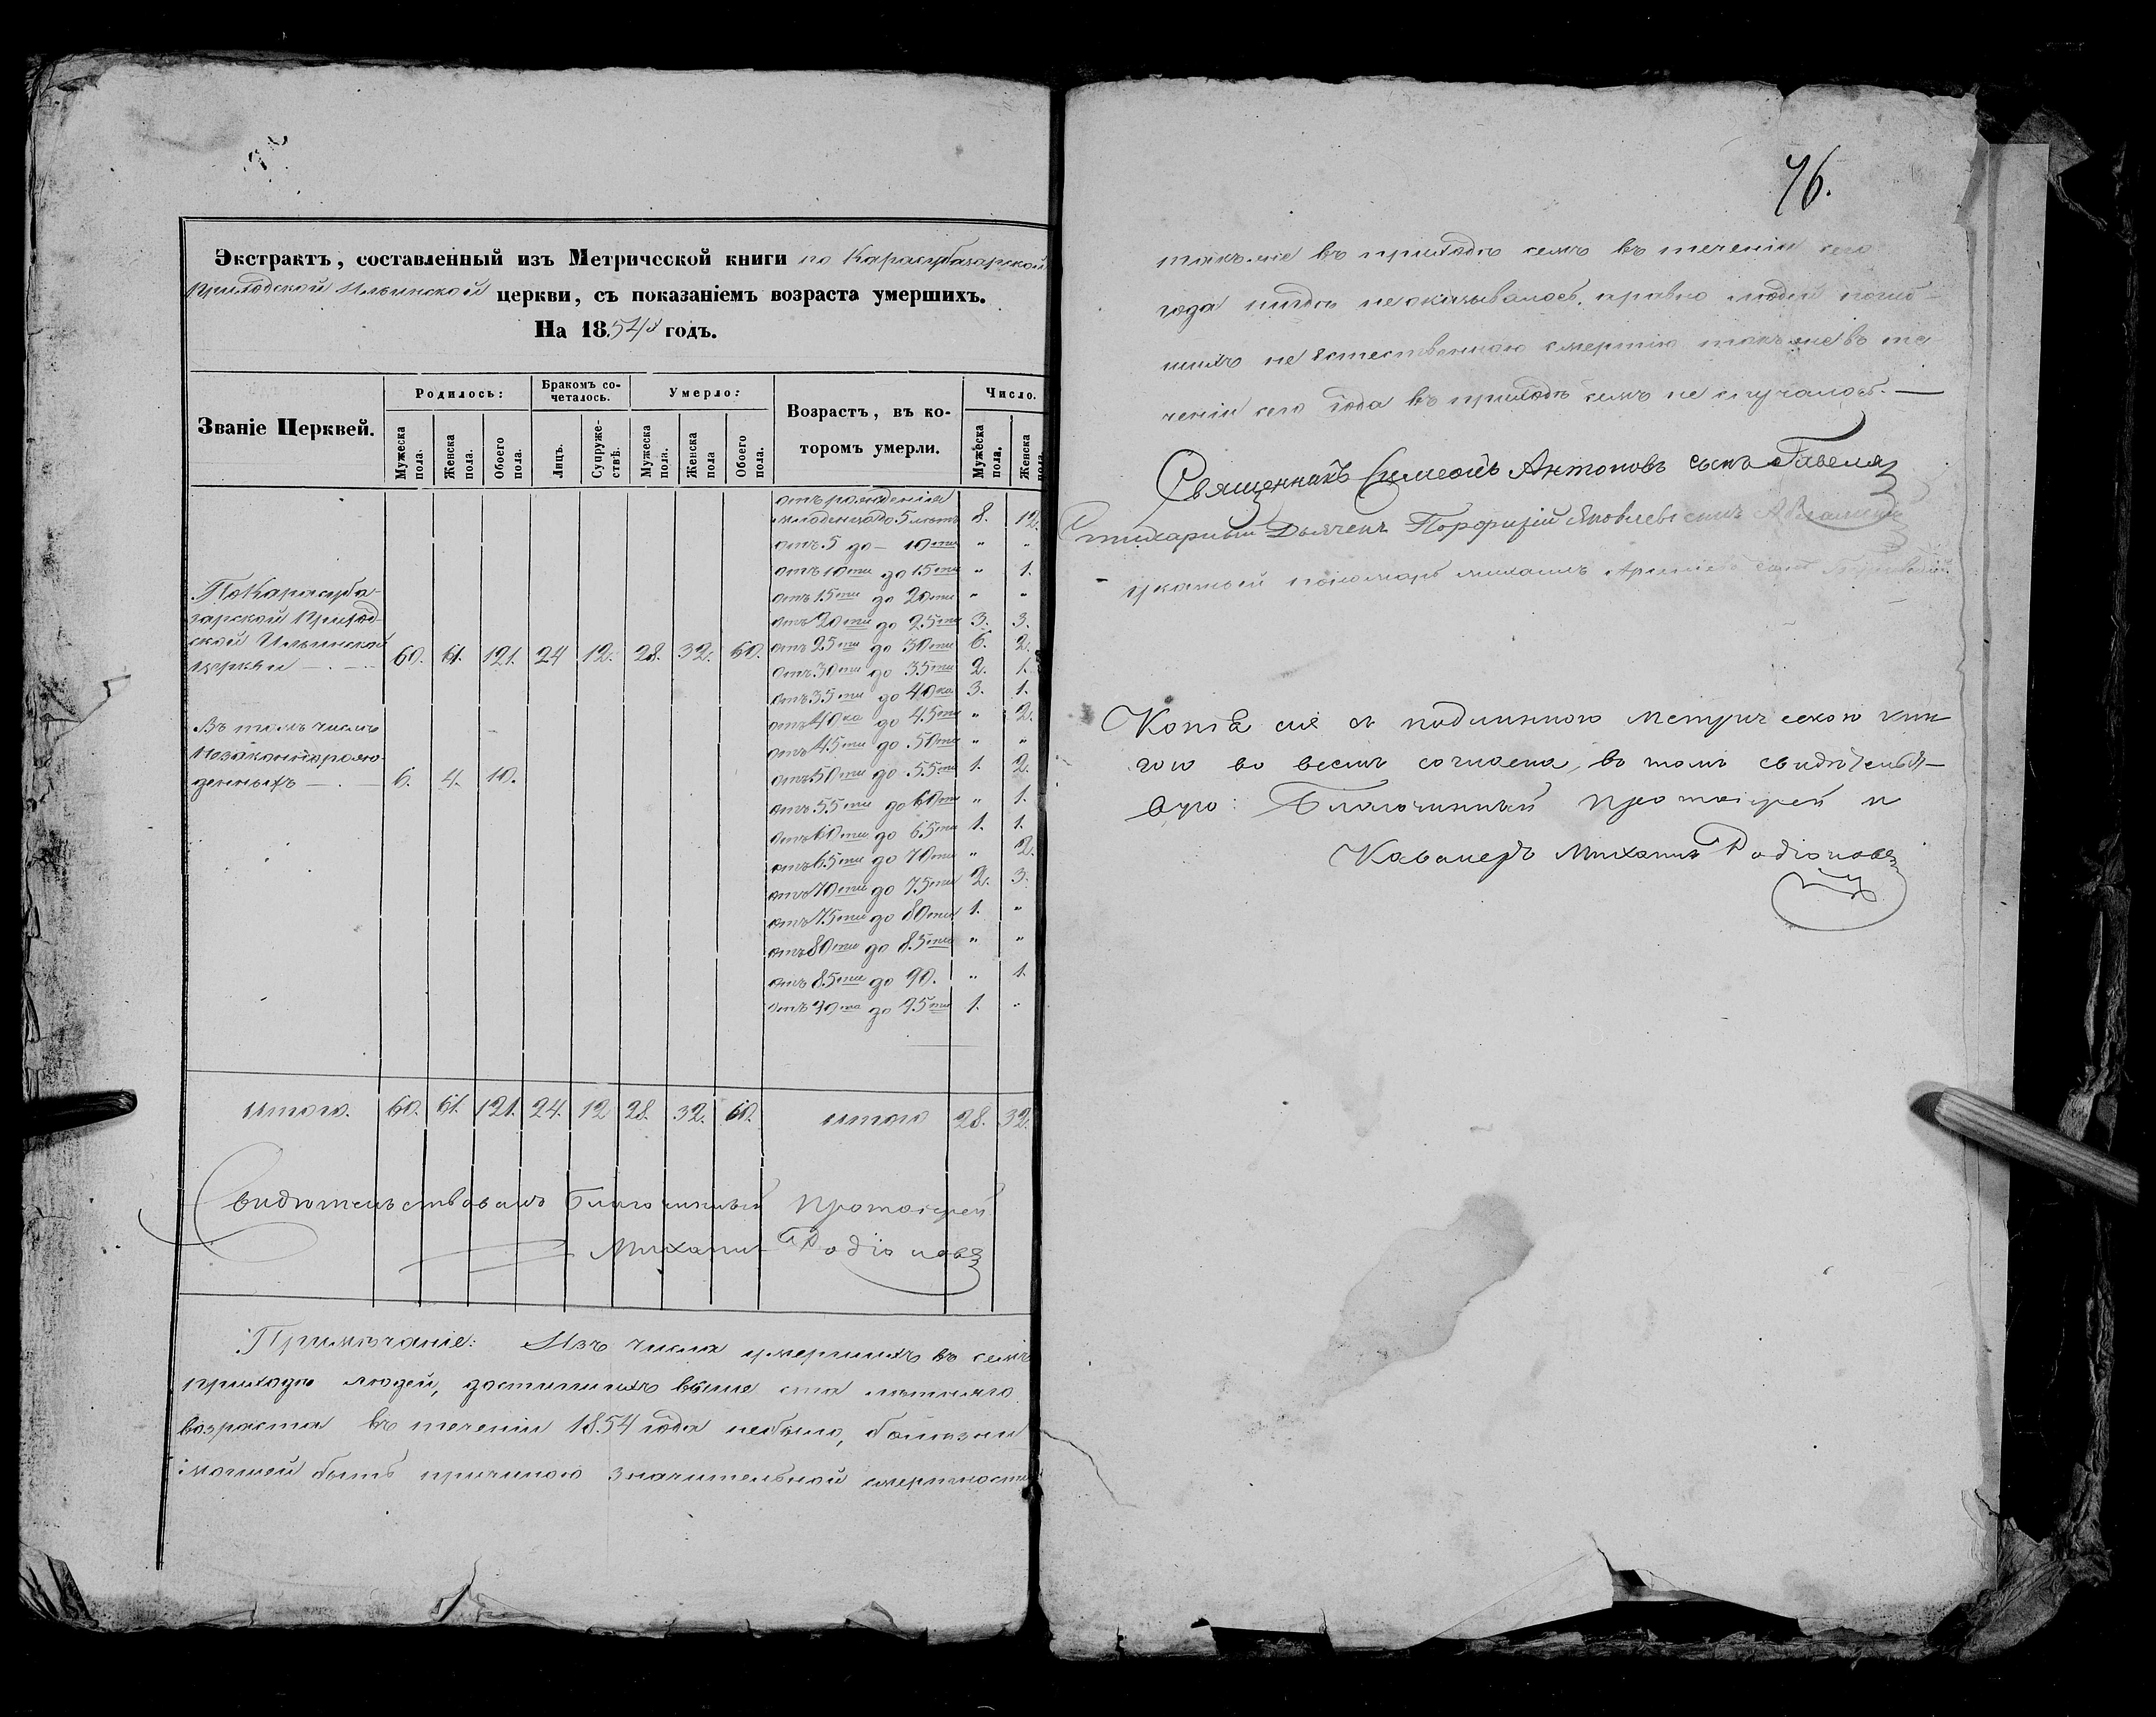 Экстрактъ, составленный изъ Метрической книги по Карасубазарской
Приходской Ильинской церкви, съ показаніемъ возраста умершихъ.
На 1854й годъ.
Званіе Церквей.
Родилось:
Бракомъ сочеталось.
Умерло:
Возрастъ, въ которомъ умерли.
Число.
Мужеска пола.
Женска пола.
Обоего пола.
Лицъ.
Супружествъ.
Мужеска пола.
Женска пола
Обоего пола.
Мужеска пола.
Женска пола.
отъ рожденія
младенца до 5 лѣтъ 8. 12.
отъ 5 до — 10ти " "
отъ 10ти до 15ти " 1.
отъ 15ти до 20ти " "
отъ 20ти до 25ти 3. 3.
отъ 25ти до 30ти 6. 2.
отъ 30ти до 35ти 2. 1.
отъ 35ти до 40ка 3. 1.
отъ 40ка до 45ти " 2.
отъ 45ти до 50ти " "
отъ 50ти до 55ти 1. 2.
отъ 55ти до 60ти " 1.
отъ 60ти до 65ти 1. 1.
отъ 65ти до 70ти " 2.
отъ 70ти до 75ти 2. 3.
отъ 75ти до 80ти 1. "
отъ 80ти до 85ти " "
отъ 85ти до 90. " 1.
отъ 90та до 95ти 1. "
По Карасуба-
зарской Приход-
ской Ильинской
церкви — . — 60. 61. 121. 24 12. 28. 32. 60.
Въ томъ числѣ
незаконнорож-
денныхъ — . — 6. 4. 10.
Итого. 60. 61. 121. 24. 12 28. 32. 60. итого 28. 32.
Свидѣтельствовалъ Благочинный Протоіерей
Михаилъ Родіоновъ
Примѣчаніе: Изъ числа умершихъ въ семъ
приходѣ людей, достигшихъ выше ста лѣтняго
возраста въ теченіи 1854 года небыло, болѣзни
могшей быть причиною значительной смертности
76.
также въ приходѣ семъ въ теченіи сего
года нигдѣ не оказывалось. равно людей погиб-
шихъ не естественною смертію также въ те
ченіи сего года въ приходѣ семъ не случалось. —
Священникъ Симеонъ Антоновъ сынъ
Стихарный Дьячекъ Порфирій Яковлевъ сынъ
указный пономарь михаилъ сынъ
Копія сія съ подлинною метрическою кни
гою во всемъ согласна, въ томъ свидѣтельст-
вую: Благочинный протоіерей и
Кавалеръ Михаилъ Родіоновъ